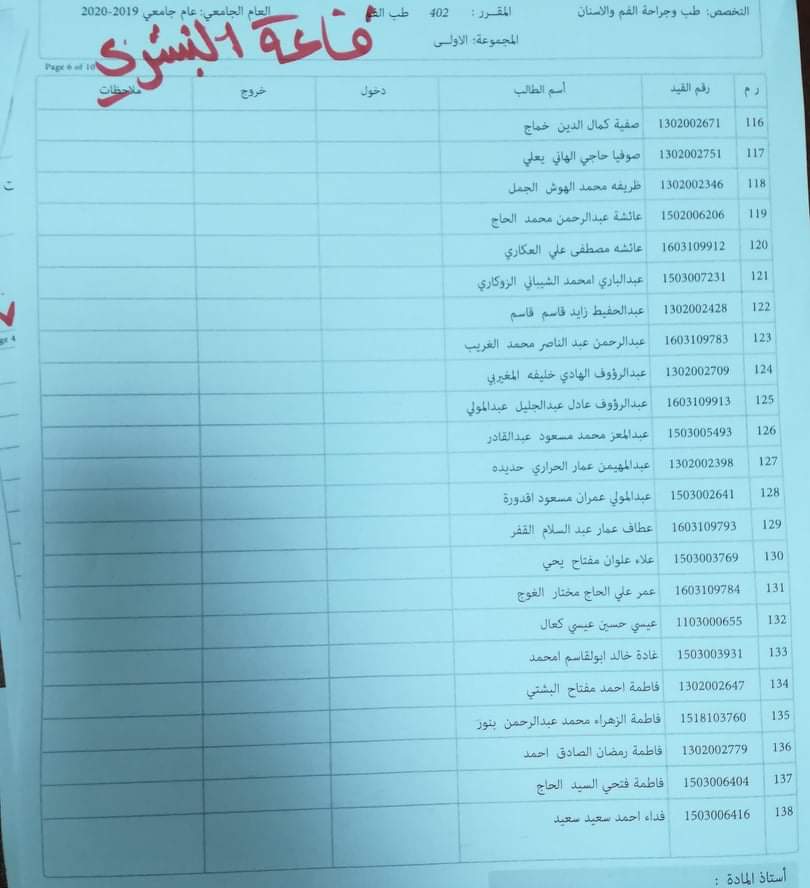 التخصص: طب وجراحة الفم والاسنان المقرر : 402 طب الفم العام الجامعي: عام جامعي 2019-2020
المجموعة: الاولى
قاعة البشرى
Page 6 of 10
ر م رقم القيد أسم الطالب دخول خروج ملاحظات
116 1302002671 صفية كمال الدين خماج
117 1302002751 صوفيا حاجي الهاني يعلي
118 1302002346 ظريفه محمد الهوش الجمل
119 1502006206 عائشة عبدالرحمن محمد الحاج
120 1603109912 عائشه مصطفى علي العكاري
121 1503007231 عبدالباري امحمد الشيباني الزوكاري
122 1302002428 عبدالحفيظ زايد قاسم قاسم
123 1603109783 عبدالرحمن عبد الناصر محمد الغريب
124 1302002709 عبدالرؤوف الهادي خليفه المغيربي
125 1603109913 عبدالرؤوف عادل عبدالجليل عبدالمولي
126 1503005493 عبدالمعز محمد مسعود عبدالقادر
127 1302002398 عبدالمهيمن عمار الحراري حديده
128 1503002641 عبدالمولي عمران مسعود اقدورة
129 1603109793 عطاف عمار عبد السلام القفر
130 1503003769 علاء علوان مفتاح يحي
131 1603109784 عمر علي الحاج مختار الغوج
132 1103000655 عيسي حسين عيسي كعال
133 1503003931 غادة خالد ابولقاسم امحمد
134 1302002647 فاطمة احمد مفتاح البشتي
135 1518103760 فاطمة الزهراء محمد عبدالرحمن بنور
136 1302002779 فاطمة رمضان الصادق احمد
137 1503006404 فاطمة فتحي السيد الحاج
138 1503006416 فداء احمد سعيد سعيد
أستاذ المادة :